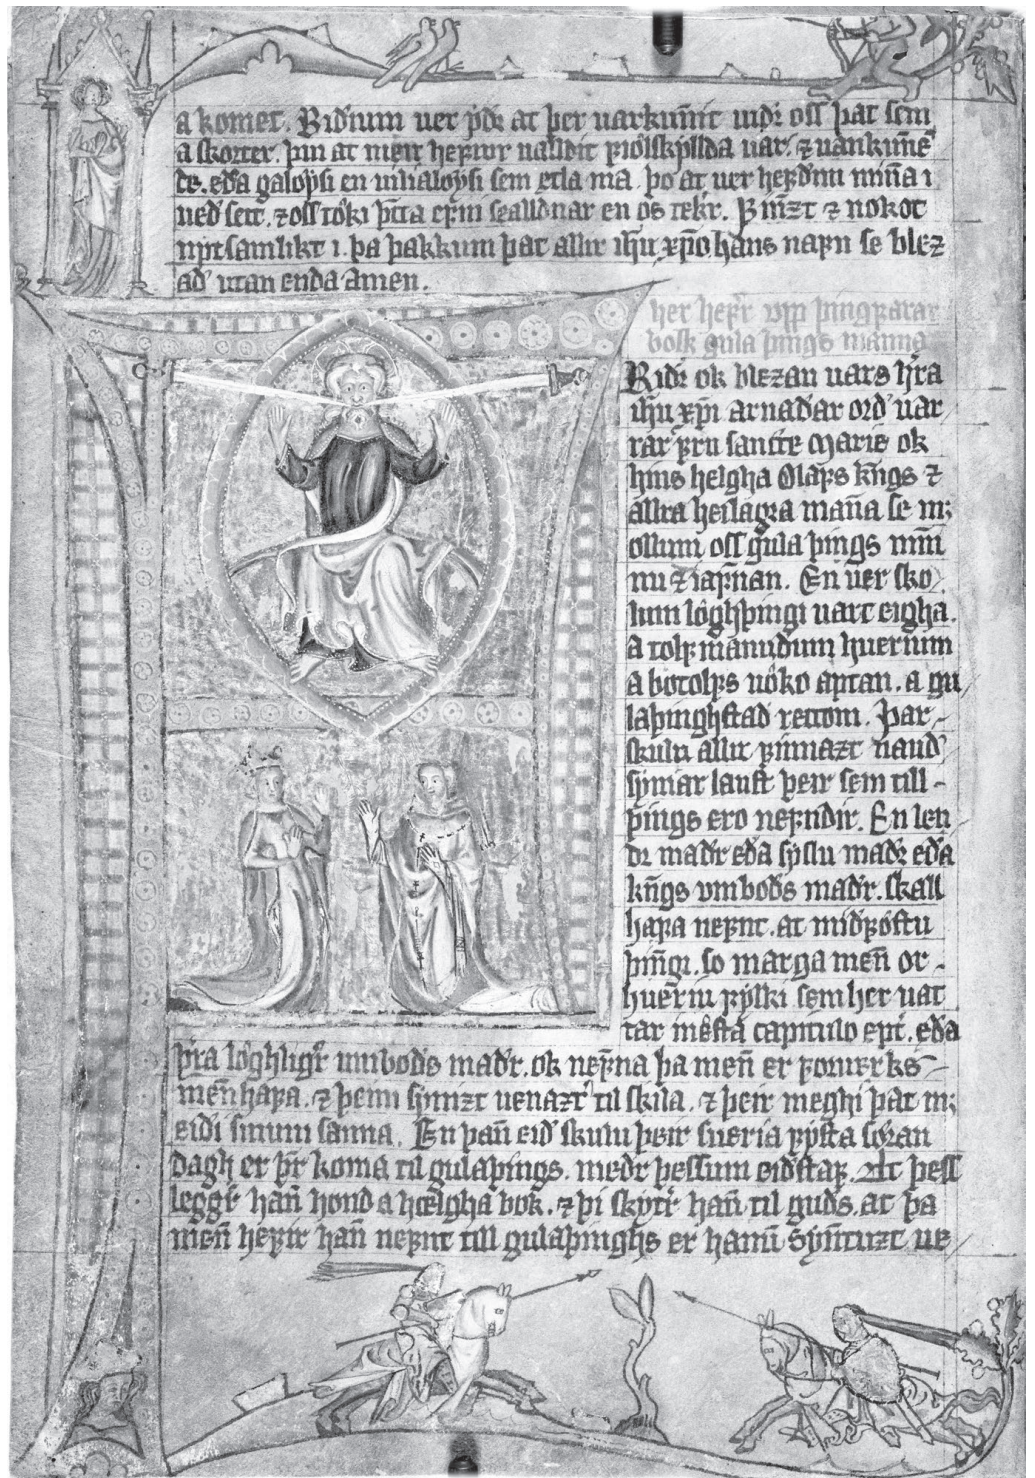 a komet. Bidium uer þess at þer uarkunnit uidr oss þat sem
a skorter. þui at meir hefuir ualldit fiolskyllda uár. ⁊ uankunne
de. eda galoysi en uilialoysi sem ętla ma. þo at uer hefdim minna i
ned sett. ⁊ oss tóki þetta efni sealldnar en os tekr. Finzt ⁊ nokot
nytsamlikt i. þa þakkum þat allir ihu xpo. hans nafn se blez
ad utan enda amen.
her hefr upp þingfarar
bolk gula þings manna
Fridr ok blezan uars herra
ihu xpi arnadar ord uar
rar fru sancte marie ok
hins helgha Olafs kngs ⁊
allra heilagra manna se m;
ollum oss gula þings mm
nu ⁊ iafnan. En uer sko
lum lóghþingi uart eigha.
a tolf manudum huerium
a botolfs uóko aptan. a gu
laþinghstad rettom. Þar
skulu allir finnazt naud
syniar laust þeir sem till
þings ero nefndir. En len
dr madr eda syslu madr eda
kngs umbods madr. skall
hafa nefnt. at midfóstu
þingi. so marga menn or
huerriu fylki sem her uat
tar i nęsta capitulo ept. eda
þera lóghligr umbods madr. ok nefna þa menn er foruerks
menn hafa. ⁊ þeim synizt uenazt til skila. ⁊ þeir meghi þat m;
eidi sinum sanna. En þann eid skulu þeir sueria fysta soknar
dagh er þeir koma til gulaþings. medr þessum eidstaf. At þess
leggr hann hond a hœlgha bok. ⁊ þi skytr hann til guds. at þa
menn hefir hann nefnt till gulaþinghs er hanum synntuzt ue